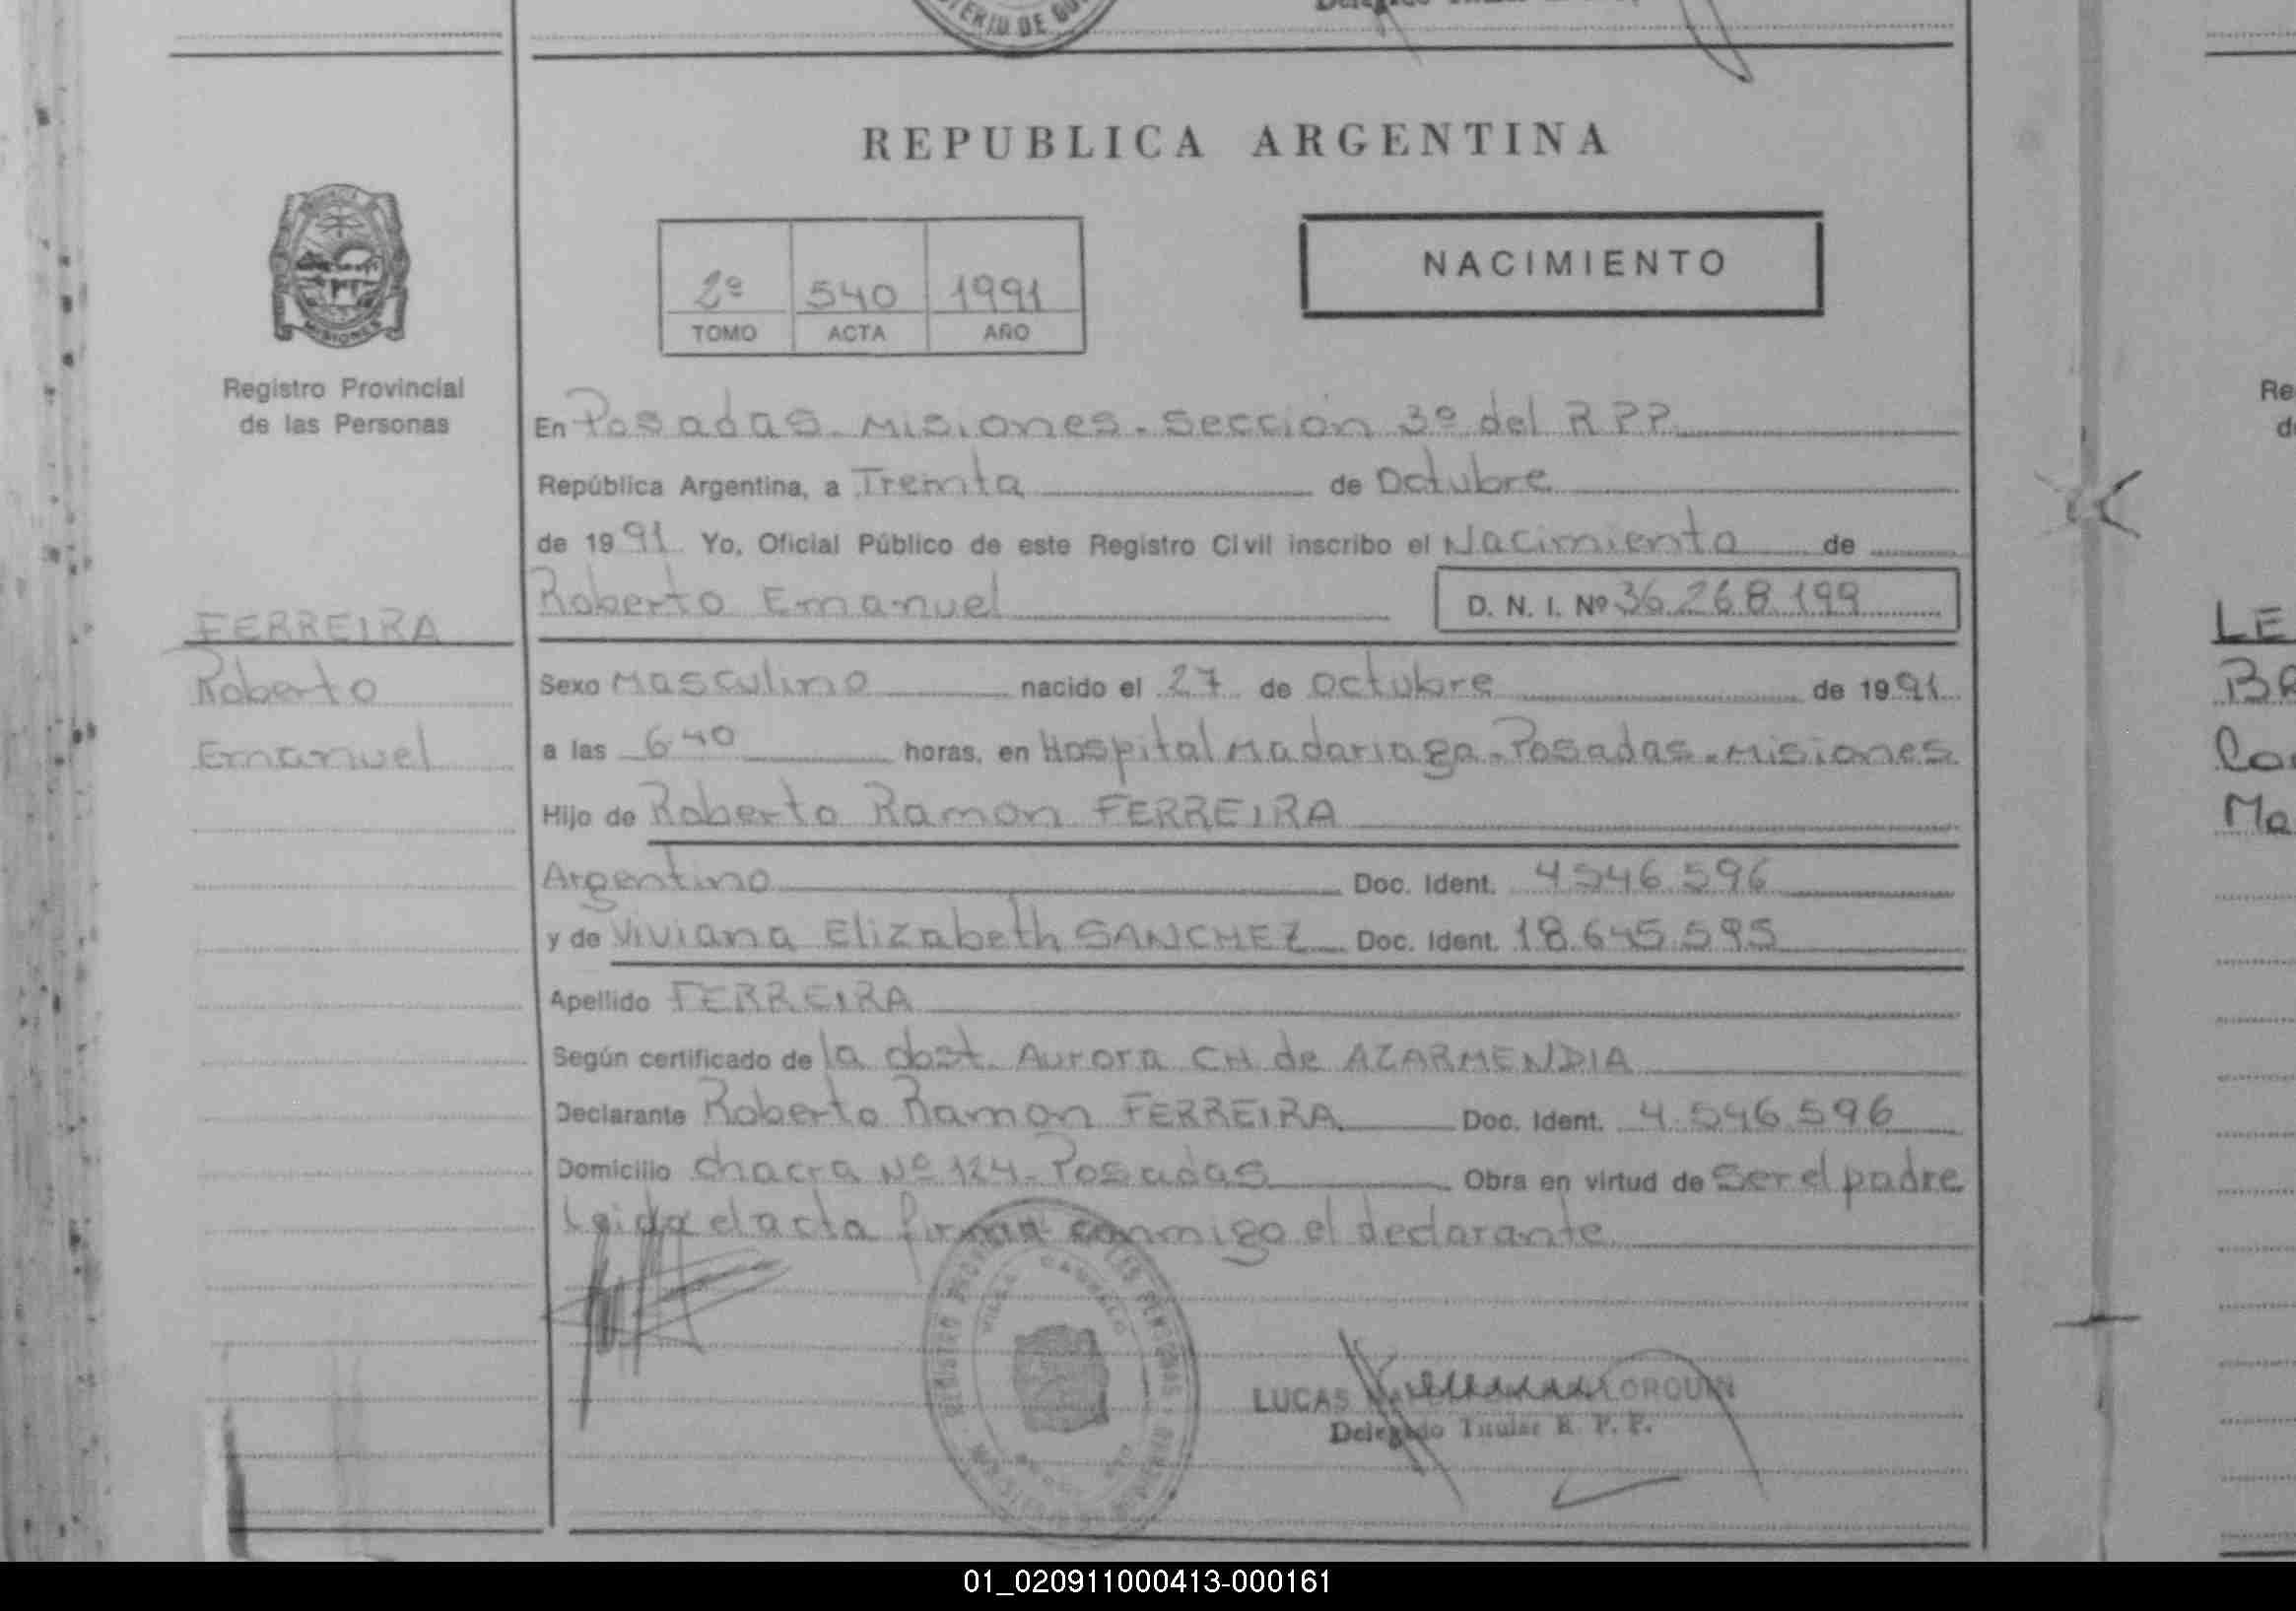 REPUBLICA ARGENTINA
2º 540 1991
TOMO ACTA AÑO
NACIMIENTO
MISIONES
Registro Provincial
de las Personas
FERREIRA
Roberto
Emanuel
En Posadas - Misiones - Sección 3º del R P P
República Argentina, a Treinta de Octubre
de 1991 Yo, Oficial Público de este Registro Civil inscribo el Nacimiento de
Roberto Emanuel D. N. I. Nº 36.268.199
Sexo Masculino nacido el 27 de Octubre de 1991
a las 6 40 horas, en Hospital Madariaga - Posadas - Misiones
Hijo de Roberto Ramon FERREIRA
Argentino Doc. Ident. 4546.596
y de Viviana Elizabeth SANCHEZ Doc. Ident. 18.645.595
Apellido FERREIRA
Según certificado de la obst. Aurora CH de AZARMENDIA
Declarante Roberto Ramon FERREIRA Doc. Ident. 4.546.596
Domicilio Chacra Nº 124 - Posadas Obra en virtud de ser el padre
Leida el acta firman conmigo el declarante
LUCAS
Delegado Titular R. P. P.
LE
Ma
01_020911000413-000161